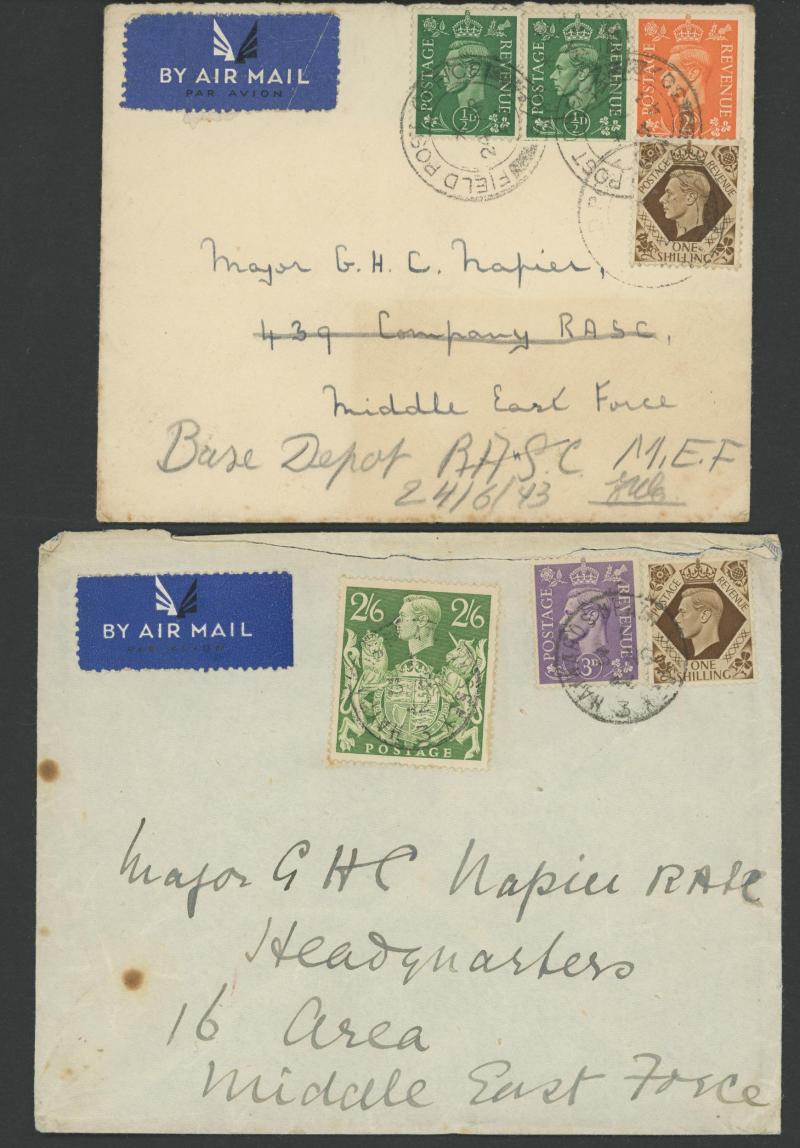 BY AIR MAIL
PAR AVION
POSTAGE REVENUE
½D
POSTAGE REVENUE
½D
POSTAGE REVENUE
FIELD POST
POST
POSTAGE REVENUE
ONE SHILLING
Major G. H. C. Napier,
439 Company RASC,
Middle East Force
Base Depot RASC. M.E.F
24/6/43
BY AIR MAIL
PAR AVION
2/6 2/6
POSTAGE
POSTAGE REVENUE
3D
POSTAGE REVENUE
ONE SHILLING
3
3
Major G H C Napier RASC
Headquarters
16 Area
Middle East Force